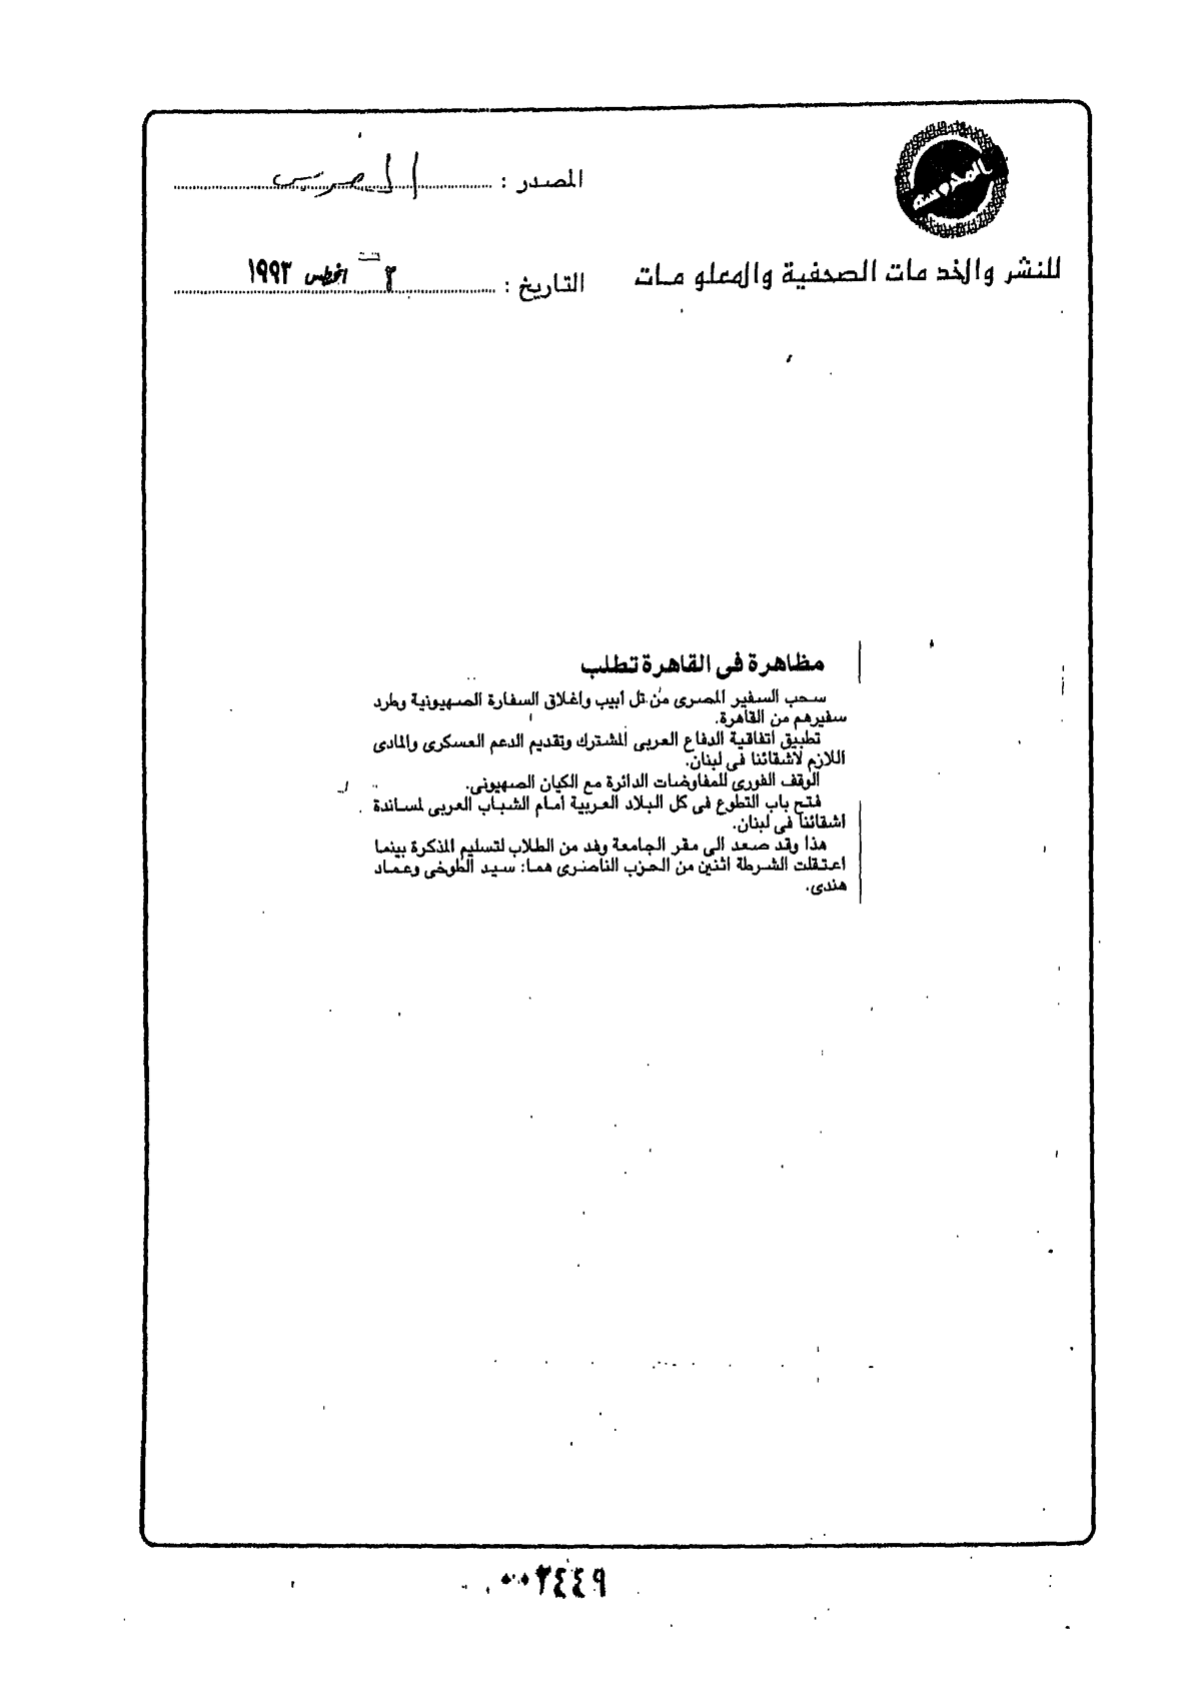 المحروسة
المصدر :
للنشر والخدمات الصحفية والمعلومات
التاريخ : ٢ اغسطس ١٩٩٣
مظاهرة فى القاهرة تطلب
سحب السفير المصرى من تل أبيب وإغلاق السفارة الصهيونية وطرد
سفيرهم من القاهرة.
تطبيق اتفاقية الدفاع العربى المشترك وتقديم الدعم العسكرى والمادى
اللازم لأشقائنا فى لبنان.
الوقف الفورى للمفاوضات الدائرة مع الكيان الصهيونى.
فتح باب التطوع فى كل البلاد العربية أمام الشباب العربى لمساندة
أشقائنا فى لبنان.
هذا وقد صعد الى مقر الجامعة وفد من الطلاب لتسليم المذكرة بينما
اعتقلت الشرطة اثنين من الحزب الناصرى هما: سيد الطوخى وعماد
هندى.
٠٠٢٤٤٩